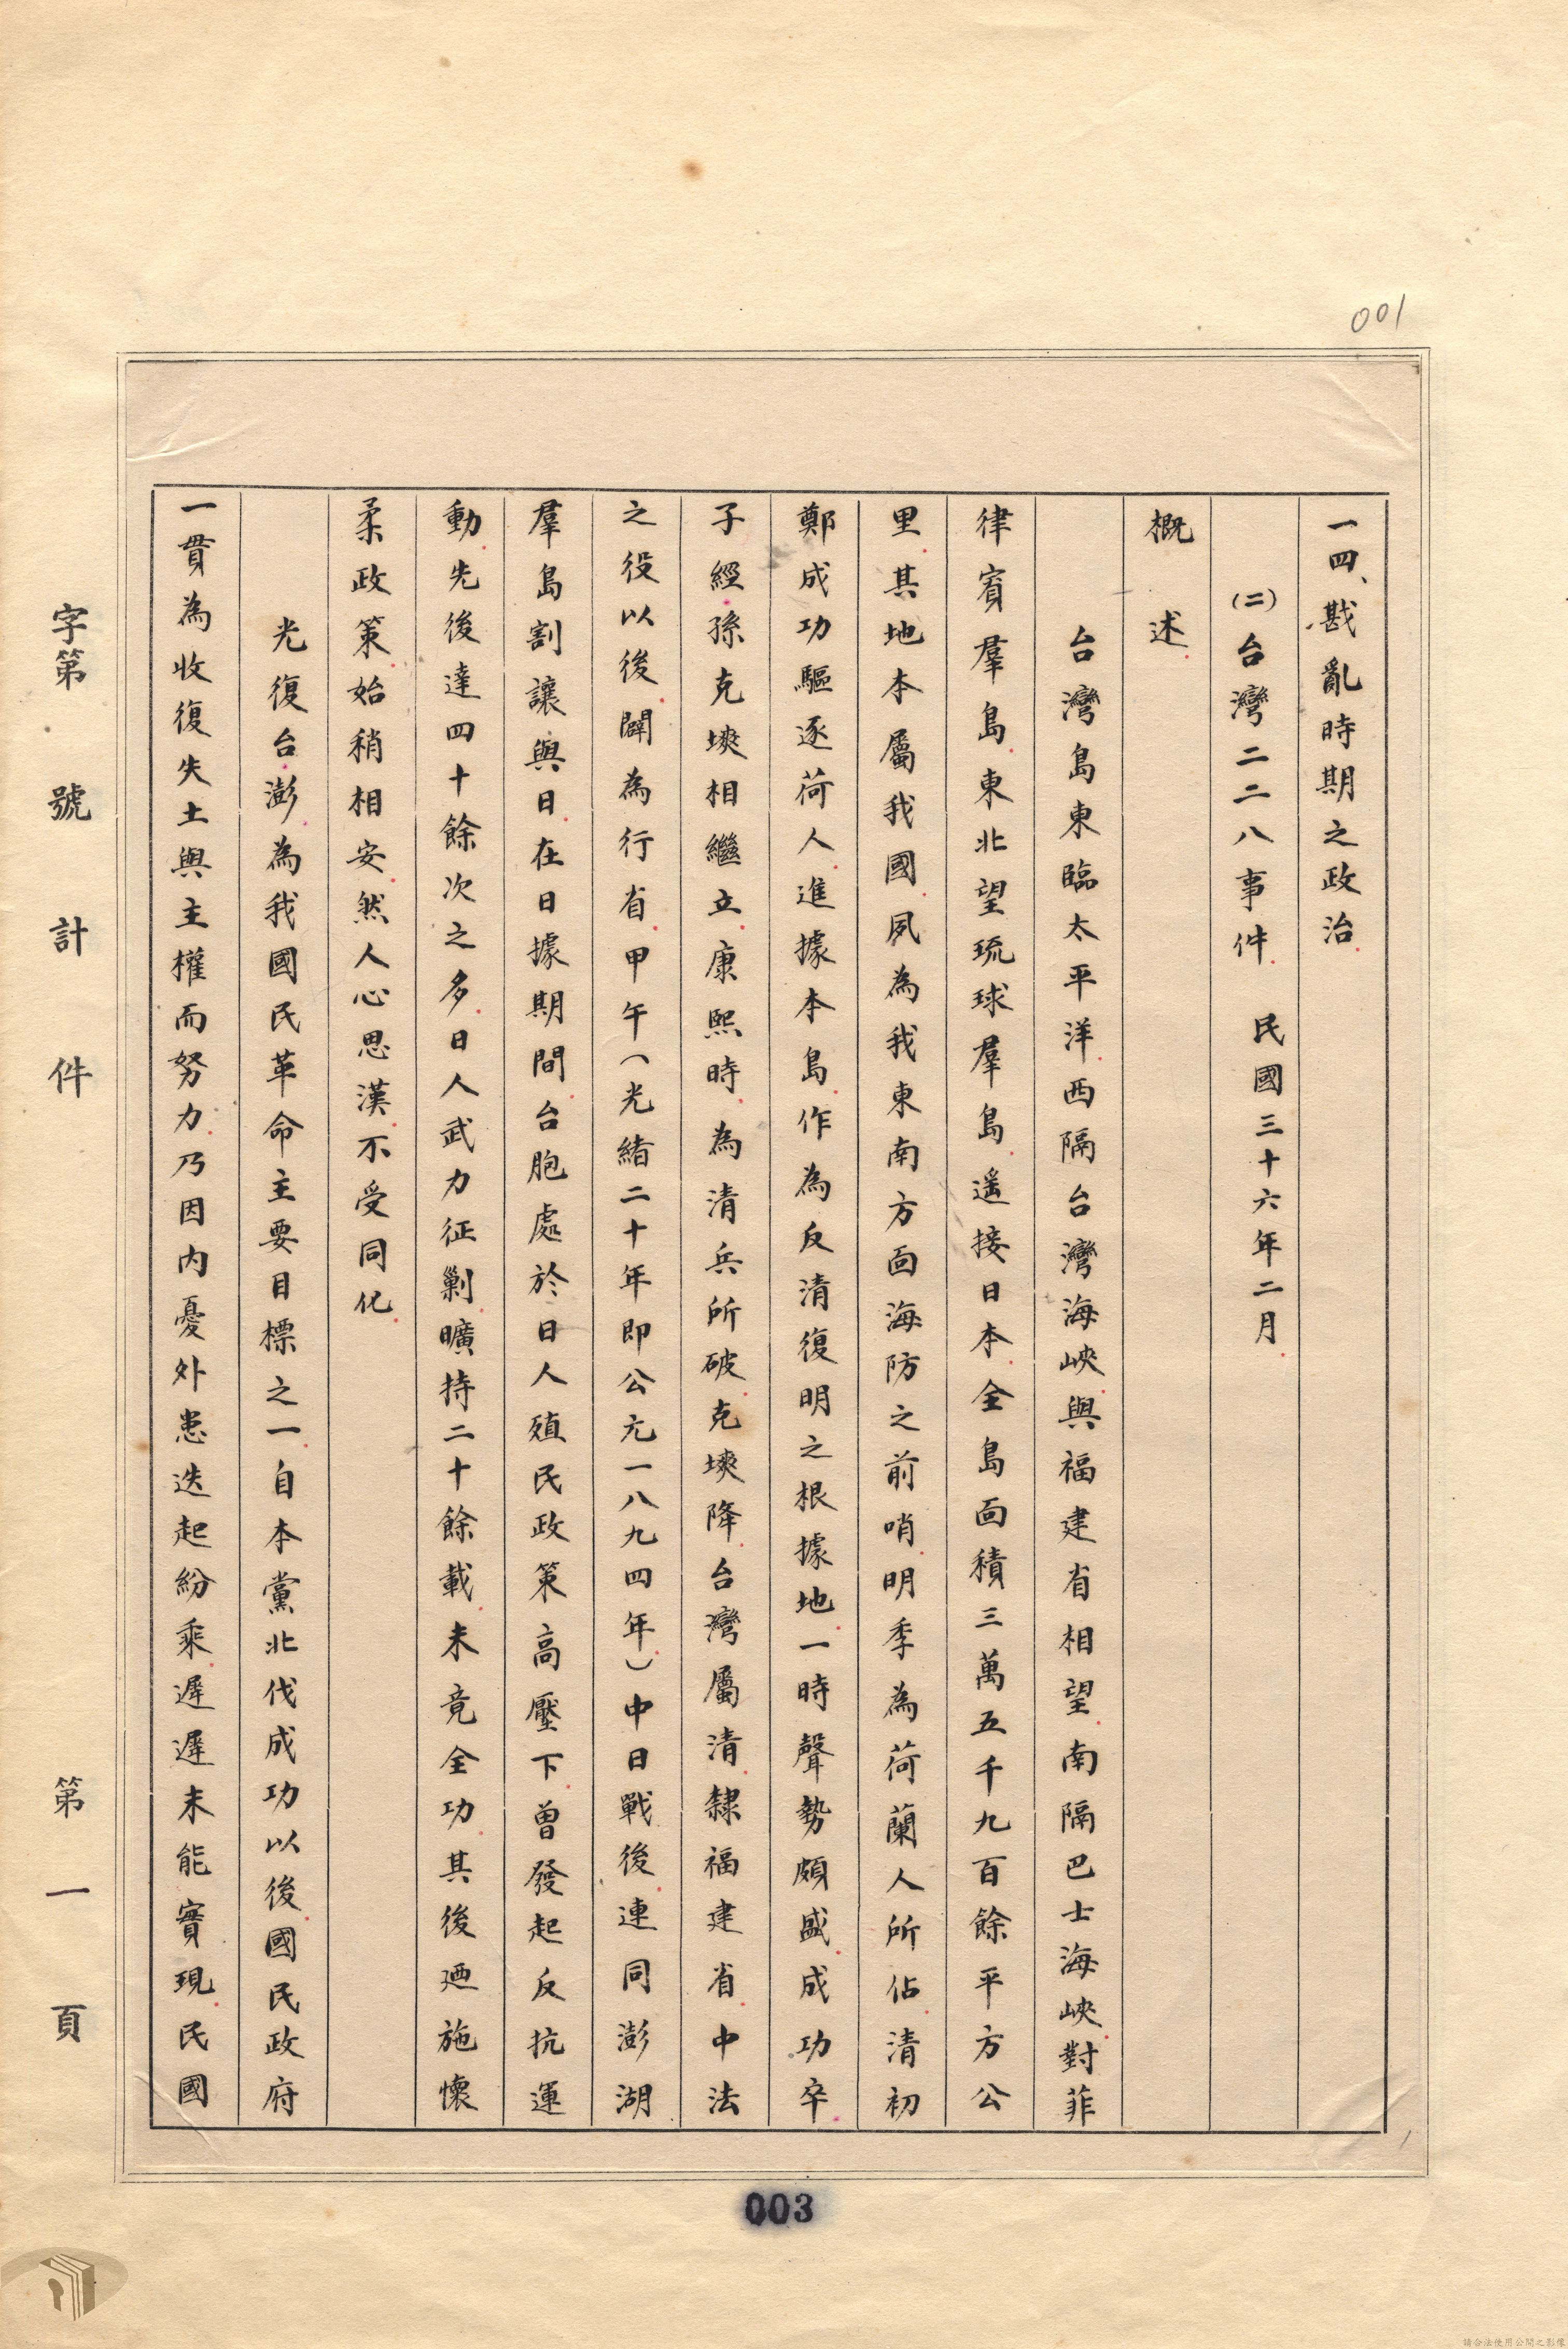 001
一四、戡亂時期之政治.
(二)台灣二二八事件. 民國三十六年二月.
概述.
台灣島東臨太平洋.西隔台灣海峽.與福建省相望.南隔巴士海峽.對菲
律賓羣島.東北望琉球羣島.遥接日本.全島面積三萬五千九百餘平方公
里.其地本屬我國.夙為我東南方面海防之前哨.明季為荷蘭人所佔.清初
鄭成功驅逐荷人.進據本島.作為反清復明之根據地.一時聲勢頗盛.成功卒.
子經.孫克塽相繼立.康熙時.為清兵所破.克塽降.台灣屬清.隸福建省.中法
之役以後.闢為行省.甲午(光緒二十年即公元一八九四年)中日戰後.連同澎湖
羣島割讓與日.在日據期間.台胞處於日人殖民政策高壓下.曾發起反抗運
動.先後達四十餘次之多.日人武力征剿.曠持二十餘載.未竟全功.其後迺施懷
柔政策.始稍相安.然人心思漢.不受同化.
光復台.澎.為我國民革命主要目標之一.自本黨北伐成功以後.國民政府
一貫為收復失土與主權而努力.乃因內憂外患迭起紛乘.遲遲未能實現.民國
字第 號計 件 第一頁
003
請合法使用公開之影像